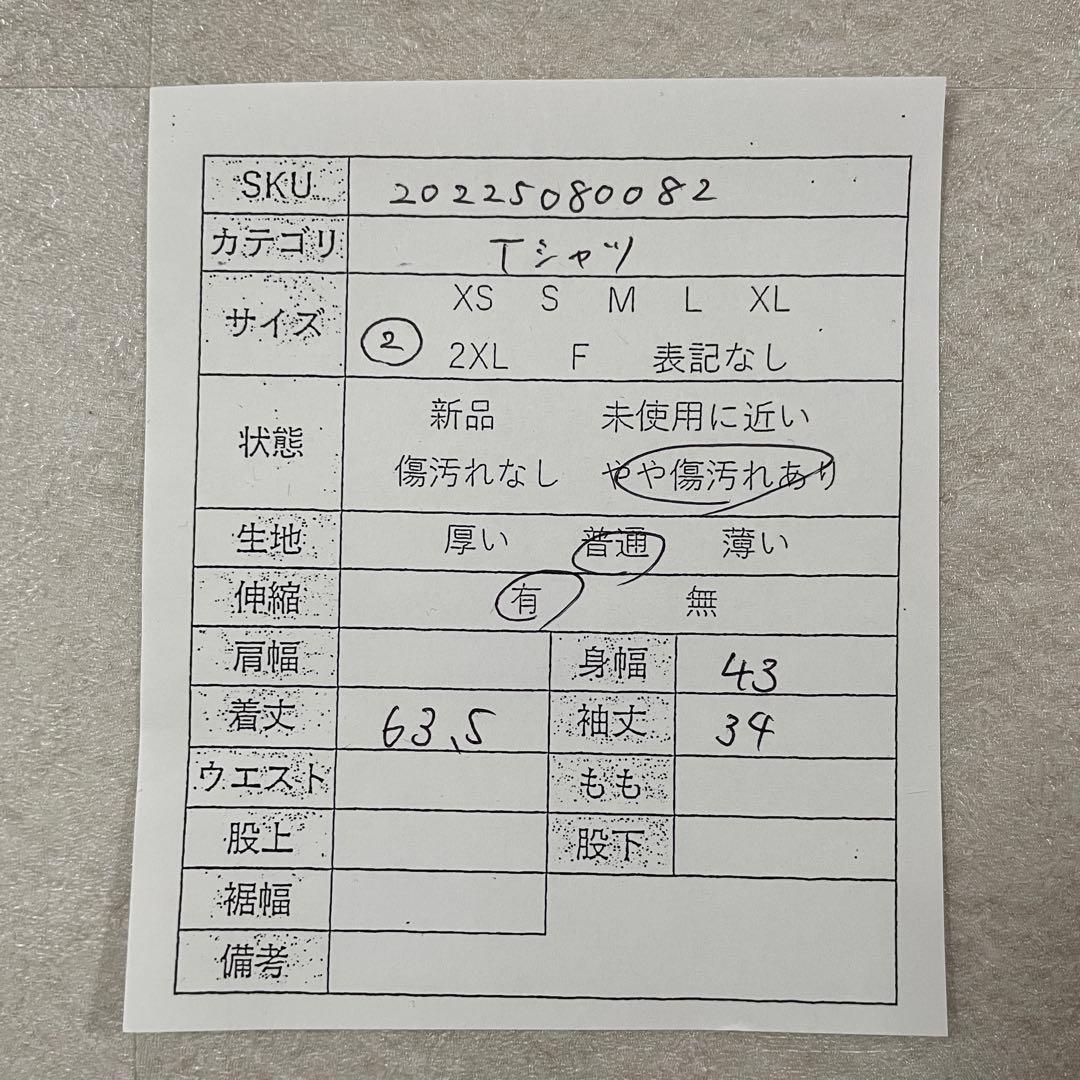 SKU 20225080082
カテゴリ Tシャツ
サイズ XS S M L XL
② 2XL F 表記なし
状態 新品 未使用に近い
傷汚れなし やや傷汚れあり
生地 厚い 普通 薄い
伸縮 有 無
肩幅 身幅 43
着丈 63.5 袖丈 34
ウエスト もも
股上 股下
裾幅
備考